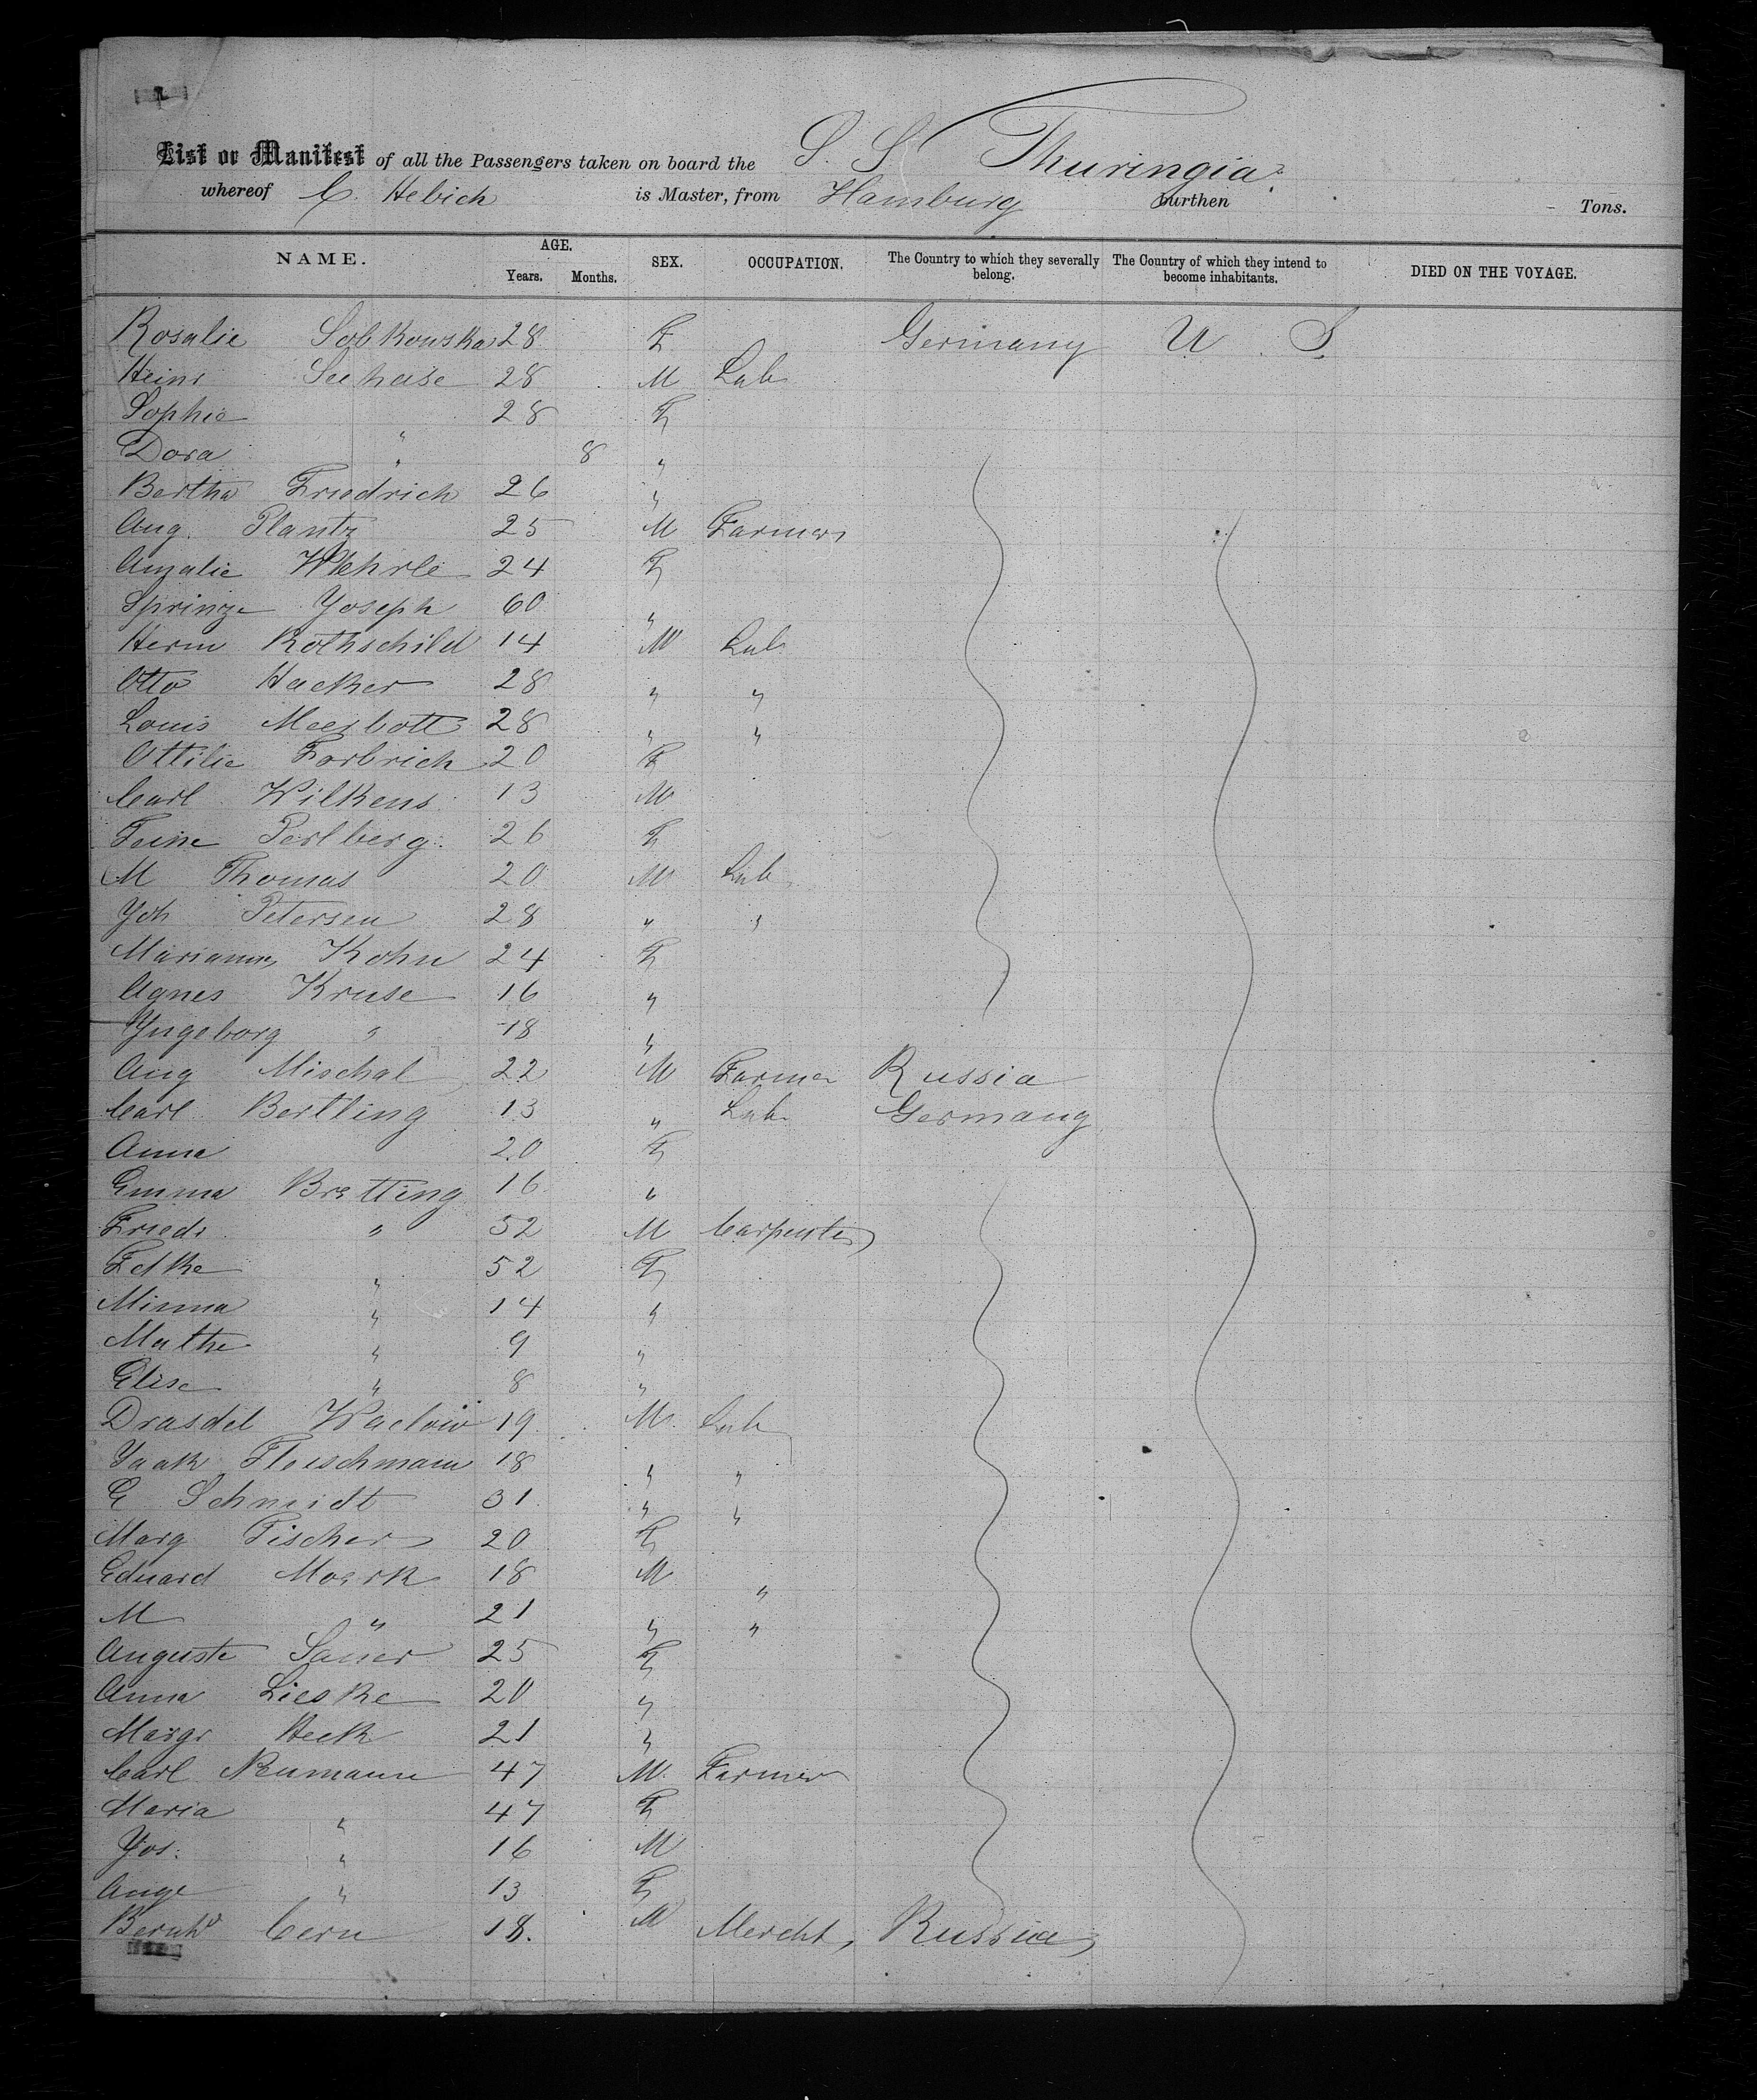 List or Manifest of all the Passengers taken on board the S. S. Thuringia.
whereof C. Hebich is Master, from Hamburg burthen Tons.
NAME. AGE. Years. Months. SEX. OCCUPATION. The Country to which they severally belong. The Country of which they intend to become inhabitants. DIED ON THE VOYAGE.
Rosalie Sobkouska 28 F Germany U S
Heinr Seehase 28 M Lab
Sophie " 28 F
Dora " 8 "
Bertha Friedrich 26 "
Aug. Plantz 25 M Farmer
Amalie Wehrle 24 F
Sprinze Joseph 60 "
Herm Rothschild 14 M Lab
Otto Hacker 28 " "
Louis Meerbott 28 " "
Ottilie Forbrich 20 F
Carl Wilkens 13 M
Feine Perlberg. 26 F
M Thomas 20 M Lab
Joh Petersen 28 " "
Mariann Kohn 24 F
Agnes Kruse 16 "
Yngeborg " 18 "
Aug Mischal 22 M Farmer Russia
Carl Bertling 13 " Lab Germany
Anna 20 F
Emma Bretting 16 "
Friedr " 52 M Carpenter
Elke " 52 F
Minna " 14 "
Mathe " 9 "
Elise " 8 "
Drasdel Waclow 19 M. Lab
Isaak Fleischmann 18 " "
G Schmidt 31 " "
Marg Fischer 20 F
Eduard Moerk 18 M "
M " 21 " "
Auguste Sauer 25 F
Anna Lieske 20 "
Margr Heck 21 "
Carl Neumann 47 M. Farmer
Maria " 47 F
Jos. " 16 M
Auge " 13 F
Bernhd Cern 18. M Mercht, Russia